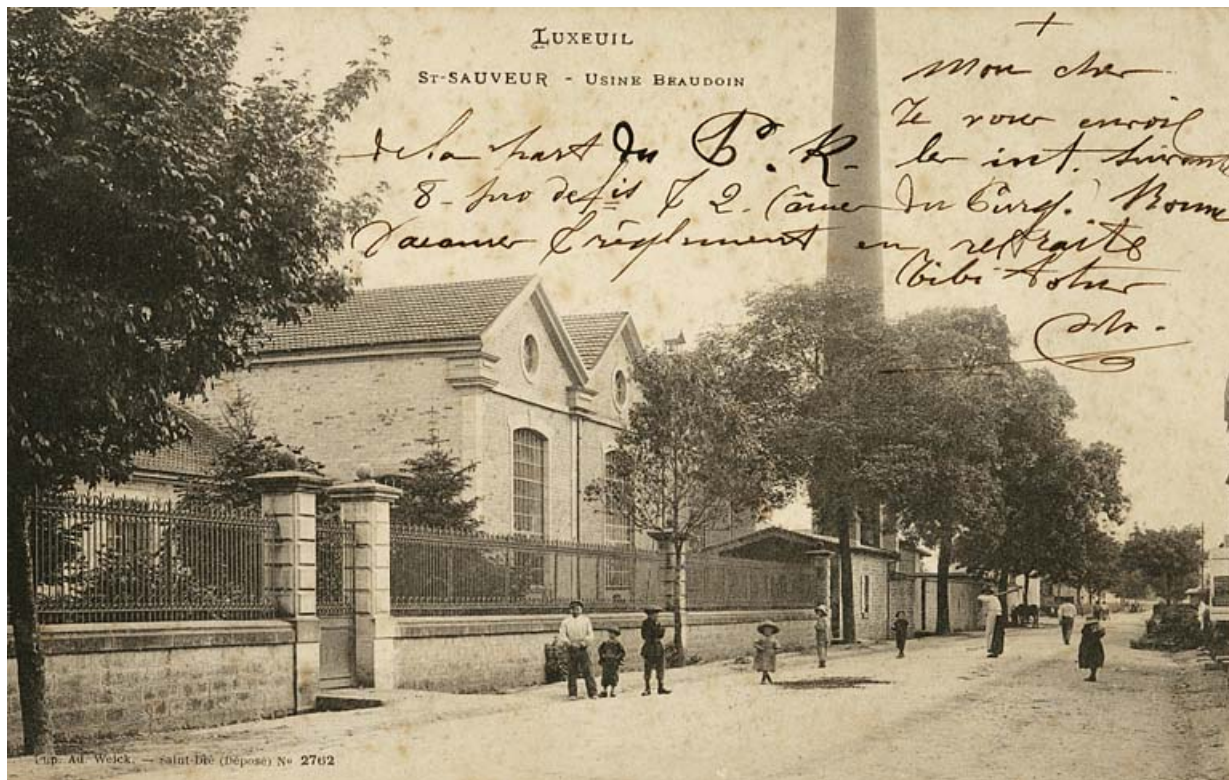 LUXEUIL
ST-SAUVEUR - USINE BEAUDOIN
+
Mon cher
Je vous envoie
de la part du P. R. les int. suivant
8 - pro defis 7 2. âmes du Purg.
règlement en retraite
Imp. Ad. Weick. — Saint-Dié (Déposé) No 2762